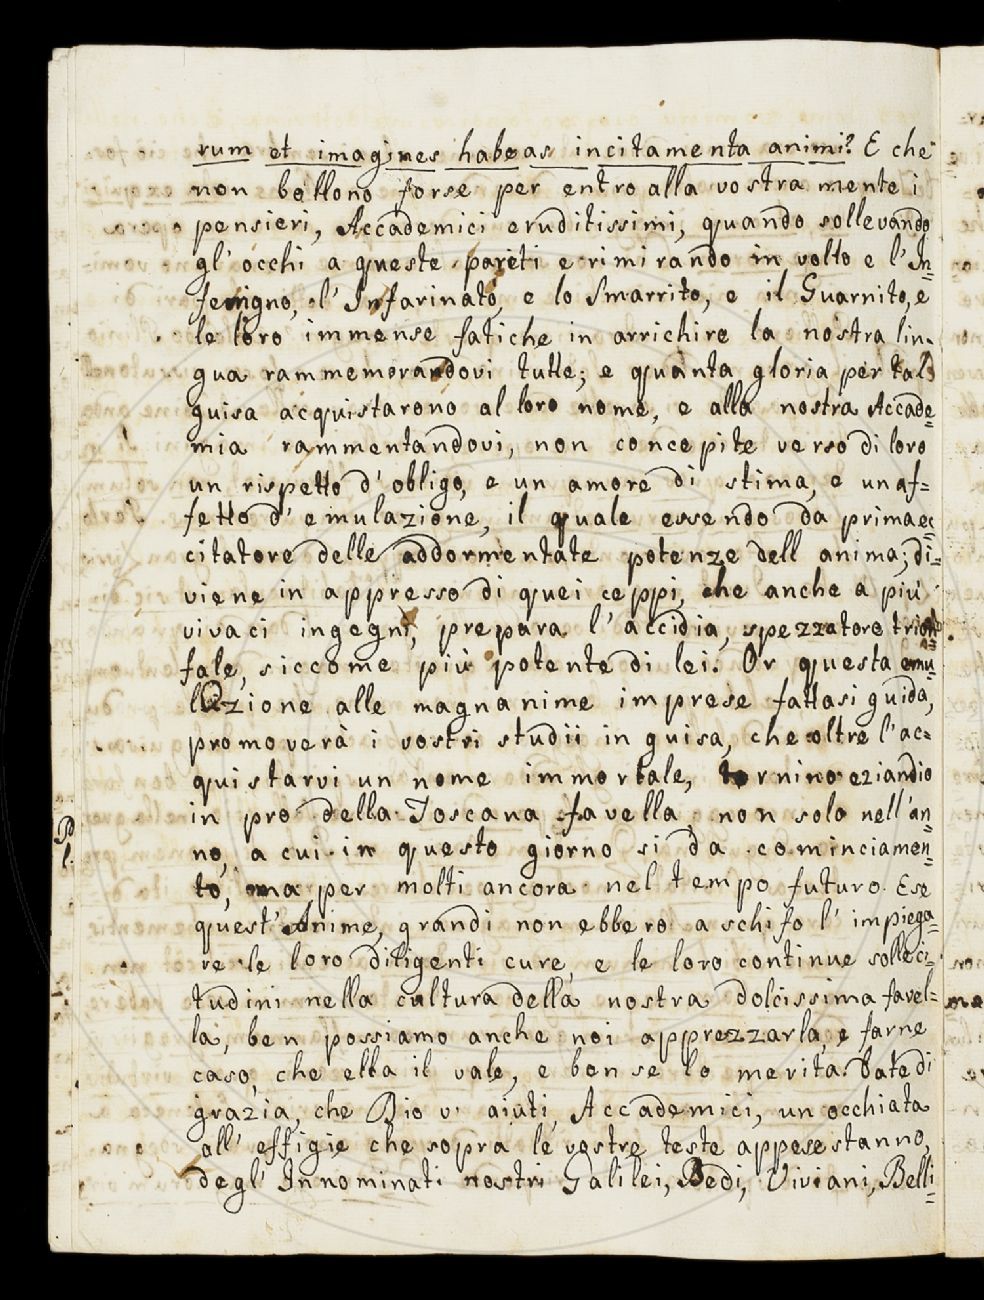 rum et imagines habeas incitamenta animi? E che
non bollono forse per entro alla vostra mente i
pensieri, Accademici eruditissimi, quando sollevando
gl' occhi a queste pareti e rimirando in volto e l' In=
ferigno, l' Infarinato, e lo Smarrito, e il Guarnito, e
le loro immense fatiche in arrichire la nostra lin=
gua rammemorandovi tutte; e quanta gloria per tal
guisa acquistarono al loro nome, e alla nostra Accade=
mia rammentandovi, non concepite verso di loro
un rispetto d' obligo, e un amore di stima, e un af=
fetto d' emulazione, il quale essendo da prima ec=
citatore delle addormentate potenze dell anima; di=
viene in appresso di quei ceppi, che anche a più
vivaci ingegni, prepara l' accidia, spezzatore trion=
fale, siccome più potente di lei. Or questa emu=
lazione alle magnanime imprese fattasi guida,
promoverà i vostri studii in guisa, che oltre l' ac=
quistarvi un nome immortale, tornino eziandio
in pro della Toscana favella non solo nell' an=
no, a cui in questo giorno si da cominciamen=
to, ma per molti ancora nel tempo futuro. E se
quest' Anime grandi non ebbero a schifo l' impiega=
re le loro diligenti cure, e le loro continue solleci=
tudini nella cultura della nostra dolcissima favel=
la, ben possiamo anche noi apprezzarla, e farne
caso, che ella il vale, e ben se lo merita. Date di
grazia, che Dio vi aiuti, Accademici, un occhiata
all' effigie che sopra le vostre teste appese stanno,
degl' Innominati nostri Galilei, Redi, Viviani, Belli=